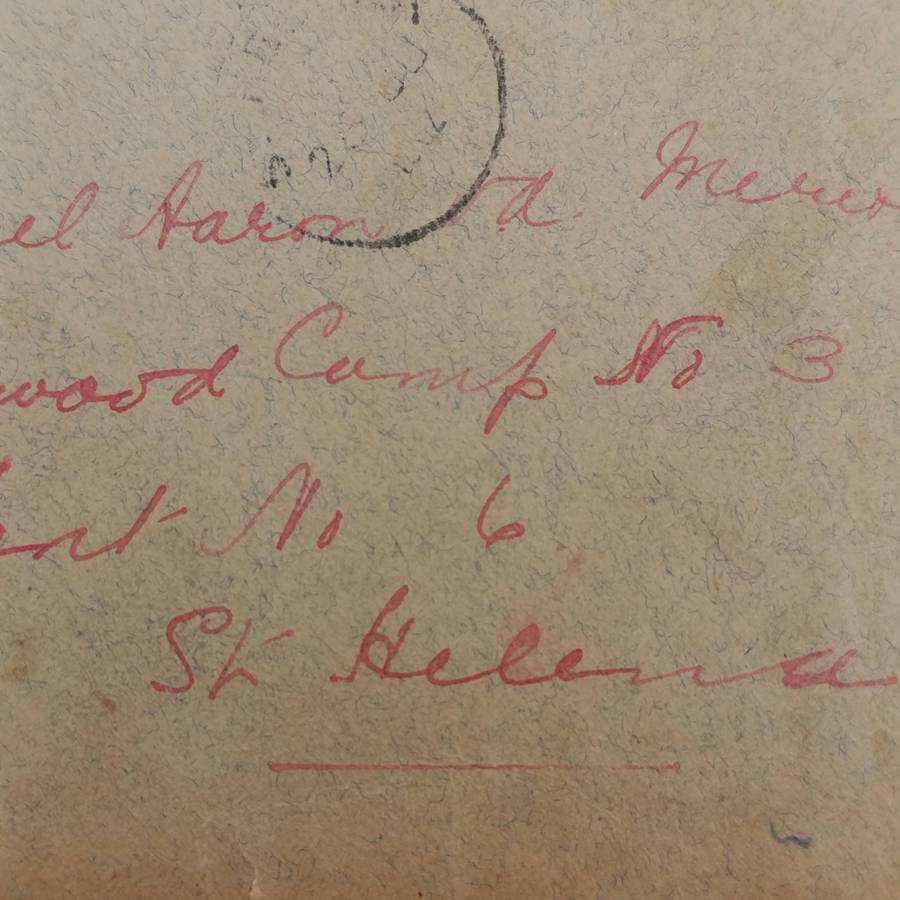 el Aaron vd Merw
wood Camp No 3
ent No 6
St Helena